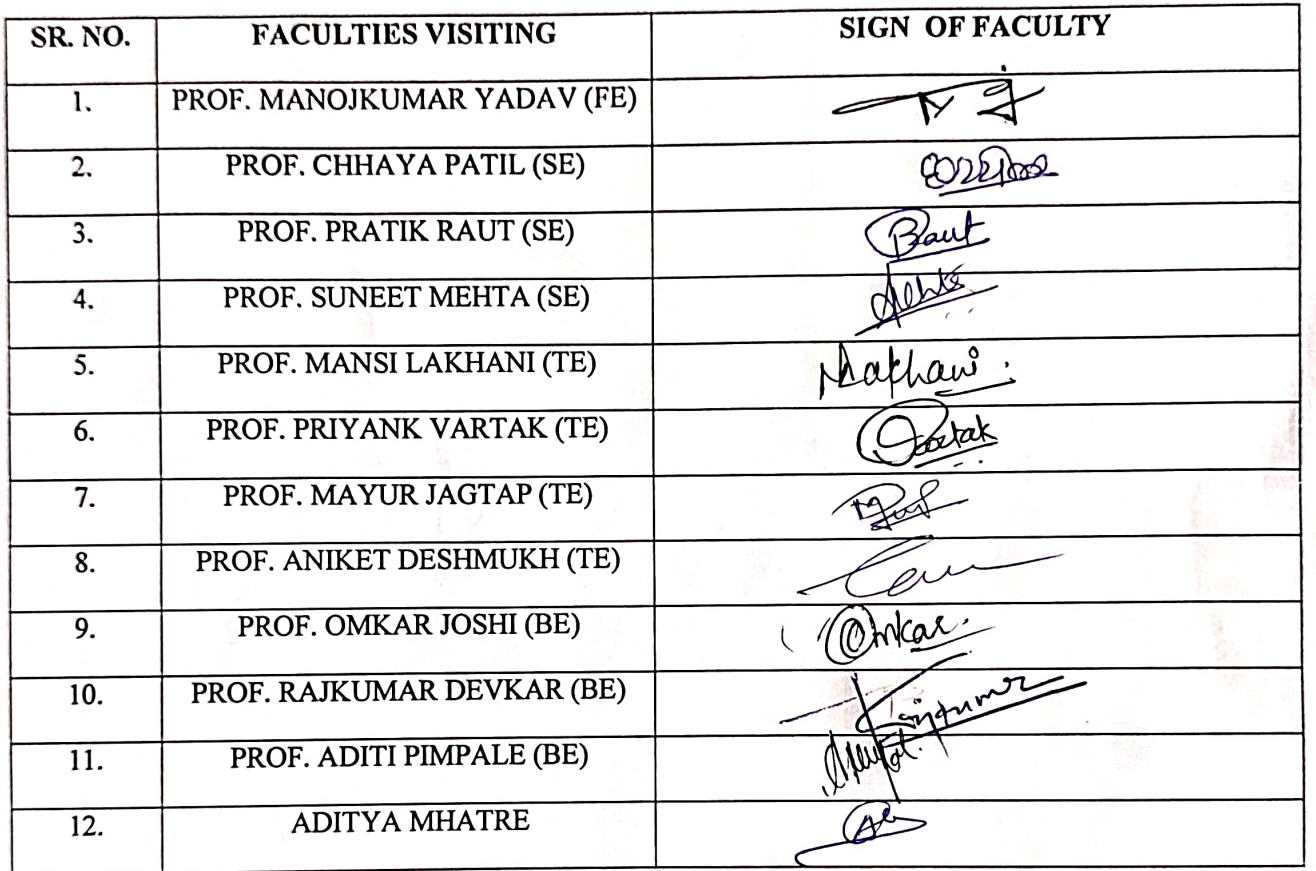 SR. NO. FACULTIES VISITING SIGN OF FACULTY
1. PROF. MANOJKUMAR YADAV (FE)
2. PROF. CHHAYA PATIL (SE)
3. PROF. PRATIK RAUT (SE) Raut
4. PROF. SUNEET MEHTA (SE) Mehta
5. PROF. MANSI LAKHANI (TE) Lakhani
6. PROF. PRIYANK VARTAK (TE) Vartak
7. PROF. MAYUR JAGTAP (TE)
8. PROF. ANIKET DESHMUKH (TE)
9. PROF. OMKAR JOSHI (BE) Omkar.
10. PROF. RAJKUMAR DEVKAR (BE) Rajkumar
11. PROF. ADITI PIMPALE (BE)
12. ADITYA MHATRE